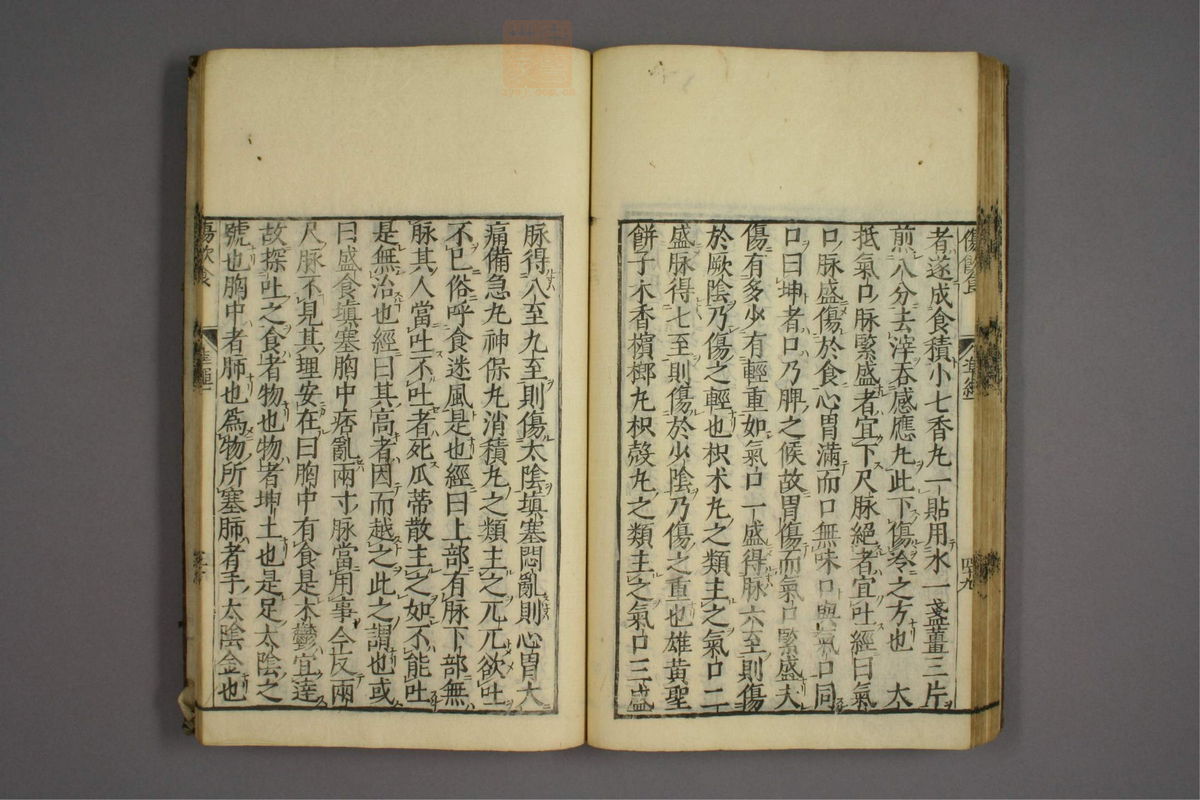 傷飲食
四十九
者遂成食積小七香丸一貼用水一盞薑三片
煎八分去滓吞感應丸此下傷冷之方也　大
抵氣口脉緊盛者宜下尺脉絕者宜吐經曰氣
口脉盛傷於食心胃滿而口無味口與氣口同
口曰坤者口乃脾之候故胃傷而氣口緊盛夫
傷有多少有輕重如氣口一盛得脉六至則傷
於厥陰乃傷之輕也枳朮丸之類主之氣口二
盛脉得七至則傷於少陰乃傷之重也雄黃聖
餅子木香檳榔丸枳殼丸之類主之氣口三盛
脉得八至九至則傷太陰填塞悶亂則心胃大
痛備急丸神保丸消積丸之類主之兀兀欲吐
不已俗呼食迷風是也經曰上部有脉下部無
脉其人當吐不吐者死瓜蒂散主之如不能吐
是無治也經曰其高者因而越之此之謂也或
曰盛食填塞胸中痞亂兩寸脉當用事今反兩
尺脉不見其理安在曰胸中有食是木鬱宜達
故探吐之食者物也物者坤土也是足太陰之
號也胸中者肺也爲物所塞肺者手太陰金也
傷飲食